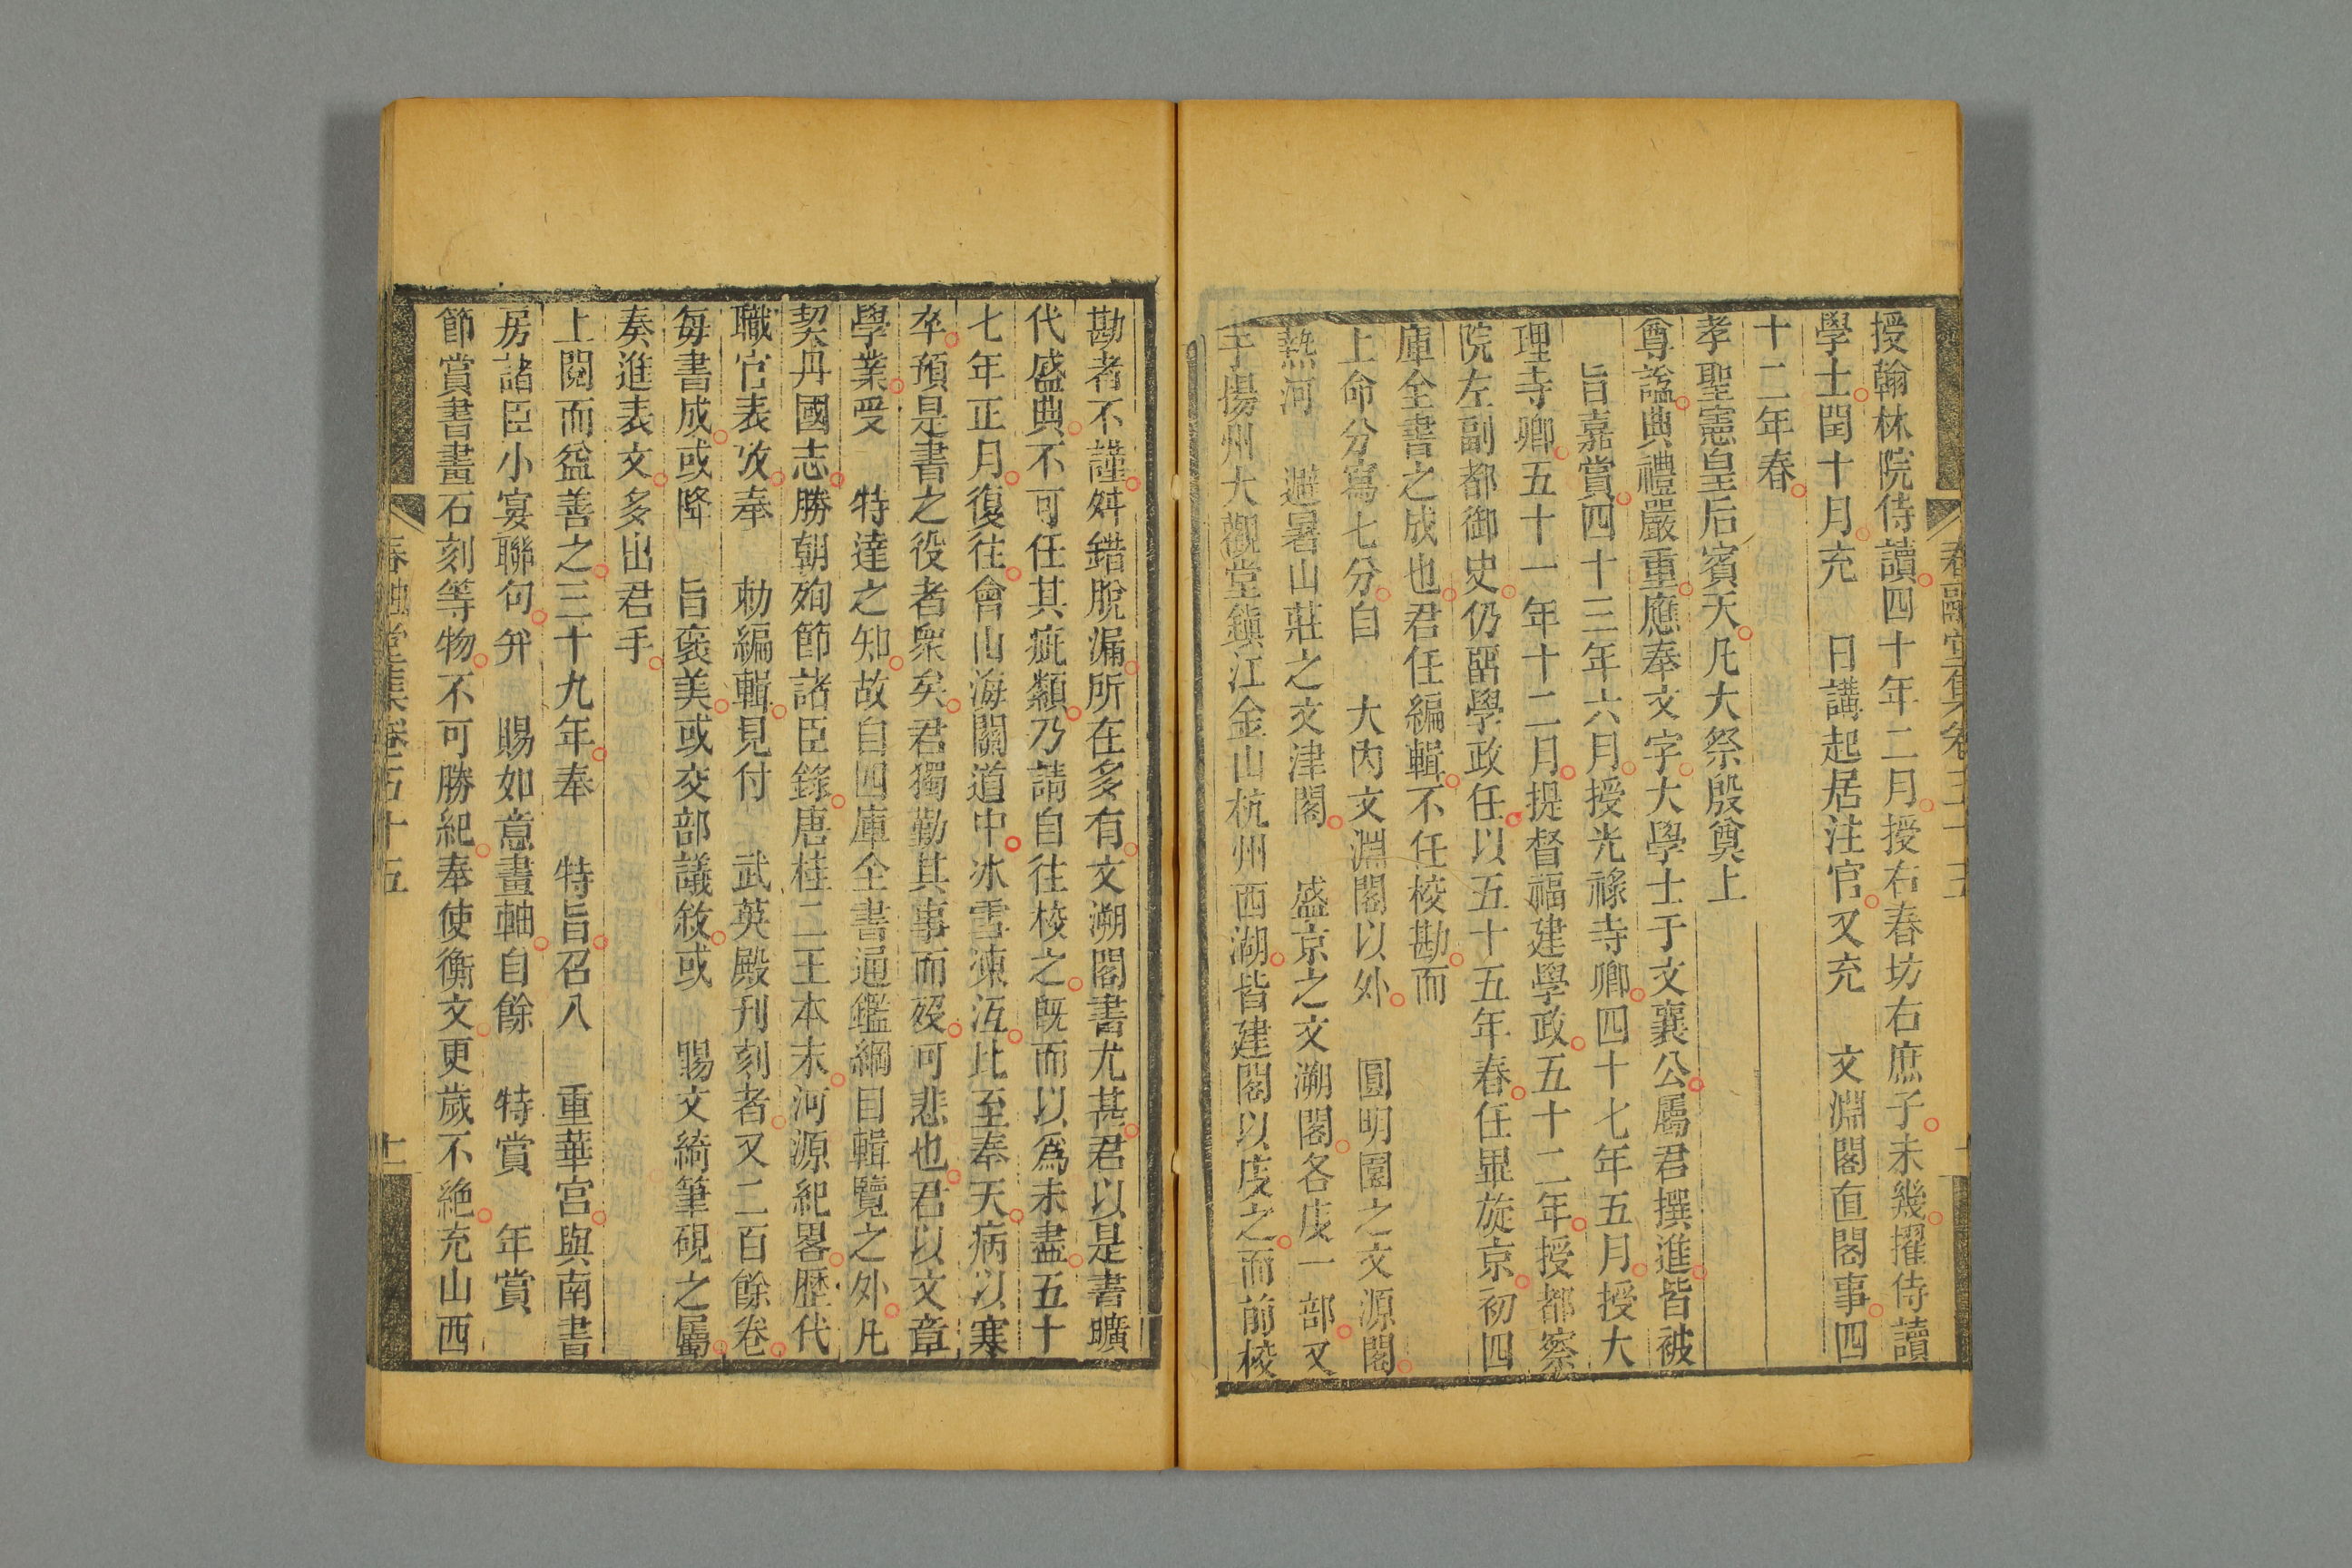 春融堂集卷五十五
授翰林院侍讀四十年二月授右春坊右庶子未幾擢侍讀
學士閏十月充　日講起居注官又充　文淵閣直閣事四
十二年春
孝聖憲皇后賓天凡大祭殷奠上
尊諡典禮嚴重應奉文字大學士于文襄公屬君撰進皆被
旨嘉賞四十三年六月授光祿寺卿四十七年五月授大
理寺卿五十一年十二月提督福建學政五十二年授都察
院左副都御史仍畱學政任以五十五年春任畢旋京初四
庫全書之成也君任編輯不任校勘而
上命分寫七分自　大內文淵閣以外　圓明園之文源閣
熱河　避暑山莊之文津閣　盛京之文溯閣各庋一部又
于揚州大觀堂鎮江金山杭州西湖皆建閣以庋之而前校
勘者不謹舛錯脫漏所在多有文溯閣書尤甚君以是書曠
代盛典不可任其疵纇乃請自往校之旣而以爲未盡五十
七年正月復往會山海關道中冰雪凍沍比至奉天病以寒
卒預是書之役者衆矣君獨勤其事而歿可悲也君以文章
學業受　特達之知故自四庫全書通鑑綱目輯覽之外凡
契丹國志勝朝殉節諸臣錄唐桂二王本末河源紀畧歷代
職官表攷奉　勅編輯見付　武英殿刊刻者又二百餘卷
每書成或降　旨褒美或交部議敘或　賜文綺筆硯之屬
奏進表文多出君手
上閱而益善之三十九年奉　特旨召入　重華宮與南書
房諸臣小宴聯句幷　賜如意畫軸自餘　特賞　年賞
節賞書畫石刻等物不可勝紀奉使衡文更歲不絶充山西
春融堂集卷五十五
十一